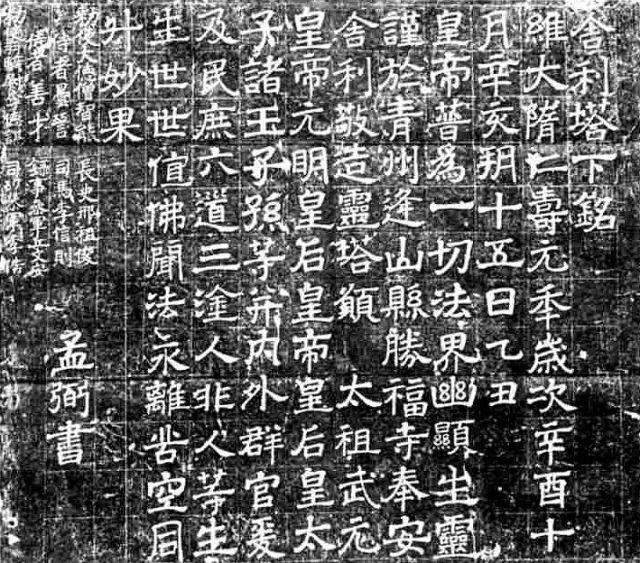 舍利塔下銘
維大隋仁壽元年歲次辛酉十
月辛亥朔十五日乙丑
皇帝普為一切法界幽顯生靈
謹於青州逢山縣勝福寺奉安
舍利敬造靈塔願　太祖武元
皇帝元明皇后皇帝皇后皇太
子諸王子孫等并內外群官爰
及民庶六道三塗人非人等生
生世世值佛聞法永離苦空同
升妙果
孟弼書
敕使大德僧智能
侍者曇晉
侍者善才
長史邢祖俊
司馬李信則
錄事參軍丘文安